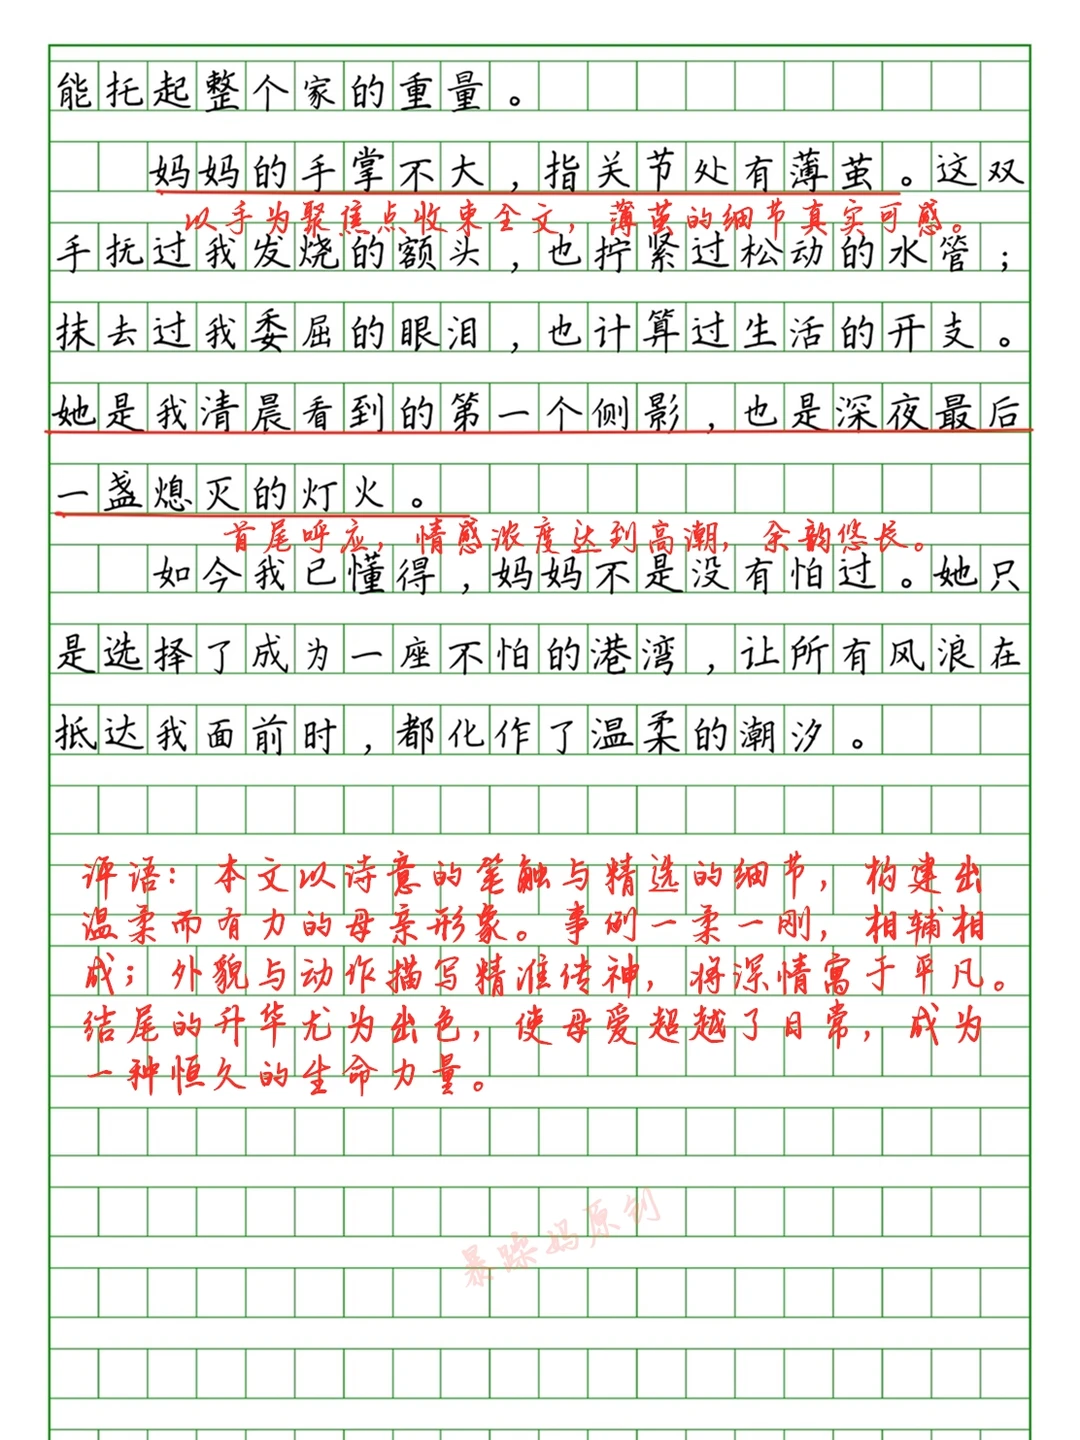 能托起整个家的重量。
妈妈的手掌不大，指关节处有薄茧。这双
以手为聚焦点收束全文，薄茧的细节真实可感。
手抚过我发烧的额头，也拧紧过松动的水管；
抹去过我委屈的眼泪，也计算过生活的开支。
她是我清晨看到的第一个侧影，也是深夜最后
一盏熄灭的灯火。
首尾呼应，情感浓度达到高潮，余韵悠长。
如今我已懂得，妈妈不是没有怕过。她只
是选择了成为一座不怕的港湾，让所有风浪在
抵达我面前时，都化作了温柔的潮汐。
评语：本文以诗意的笔触与精选的细节，构建出
温柔而有力的母亲形象。事例一柔一刚，相辅相
成；外貌与动作描写精准传神，将深情寓于平凡。
结尾的升华尤为出色，使母爱超越了日常，成为
一种恒久的生命力量。
暴躁妈原创